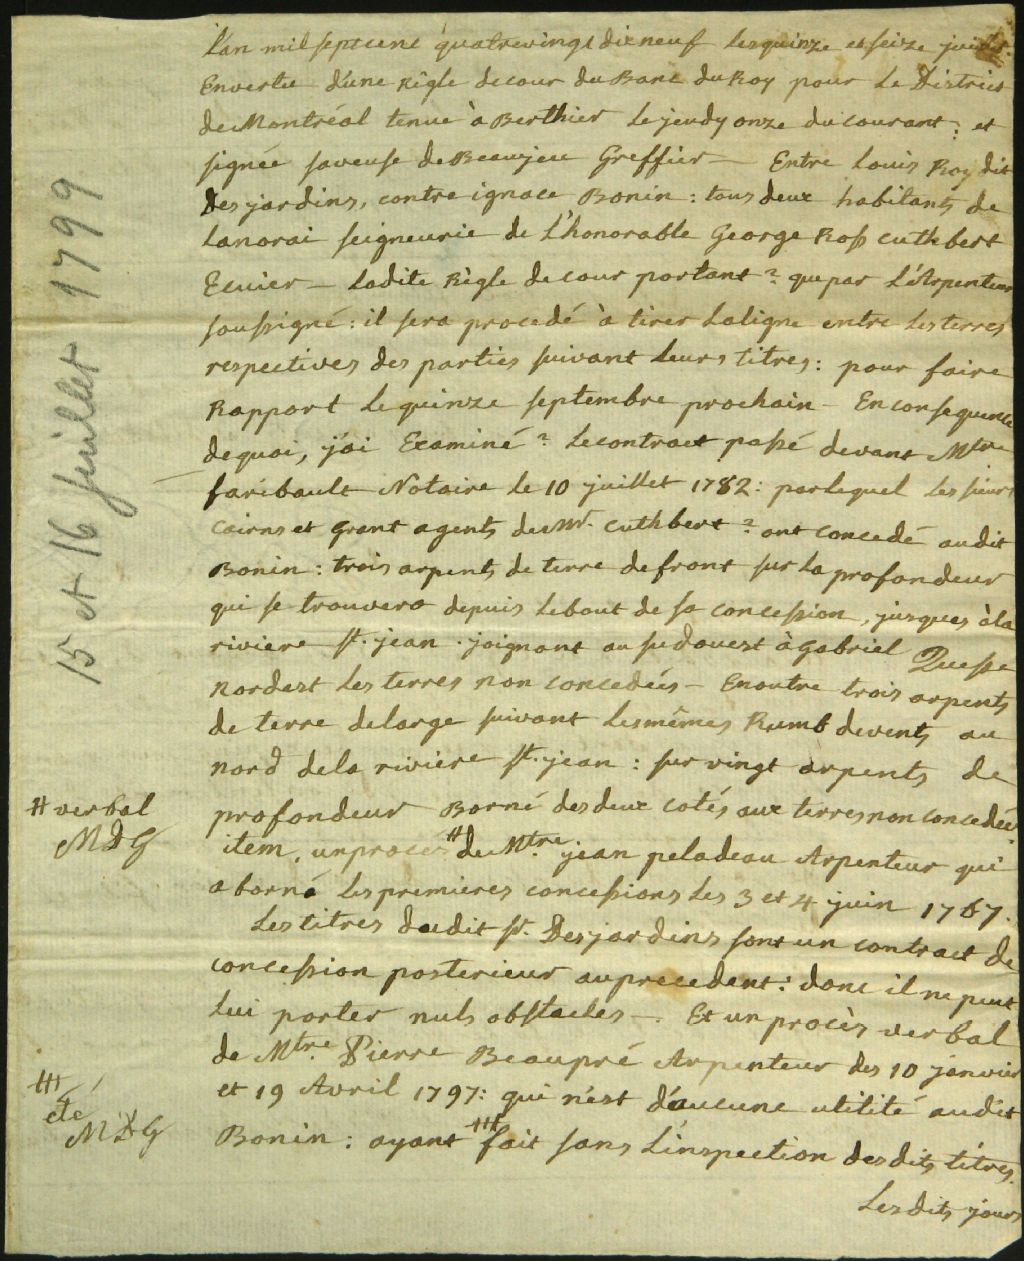 L'an mil sept cent quatrevingt dix neuf les quinze et seize juillet.
En vertu d'une Règle de cour du Banc du Roy pour Le District
de Montréal tenue à Berthier Le jeudy onze du courant: et
signée saveuse de Beaujeu Greffier — Entre Louis Roy dit
Desjardins, contre ignace Bonin: tous deux habitants de
Lanorai seigneurie de L'honorable George Ross Cuthbert
Ecuier — Ladite Règle de cour portant: que par L'Arpenteur
soussigné: il sera procedé à tirer La ligne entre Les terres
respectives des parties suivant Leurs titres: pour faire
Rapport Le quinze septembre prochain — En consequence
de quoi, j'ai Examiné: Le contract passé devant Mtre
faribault Notaire le 10 juillet 1782: par lequel Les sieurs
Cairns et Grant agents de Mr. Cuthbert: ont concedé audit
Bonin: trois arpents de terre de front sur La profondeur
qui se trouvera depuis Le bout de sa concession, jusques à la
riviere St. jean. joignant au sudouest à Gabriel
Nordest Les terres non concedées — En outre trois arpents
de terre de large suivant Les mêmes Rumb de vents au
Nord de la rivière St. jean: sur vingt arpents de
profondeur Borné des deux cotés aux terres non concedées
item, un procès # de Mtre. jean peladeau Arpenteur qui
a borné Les premieres concessions Les 3 et 4 juin 1767.
Les titres dudit Sr. Desjardins sont un contract de
concession posterieur au precedent: donc il ne peut
Lui porter nuls obstacles —. Et un procès verbal
de Mtre. Pierre Beaupré Arpenteur des 10 janvier
et 19 Avril 1797: qui n'est d'aucune utilité audit
Bonin: ayant ## fait sans L'inspection des dits titres.
Les dits jours
15 et 16 juillet 1799
# verbal
MDG
## été
MDG